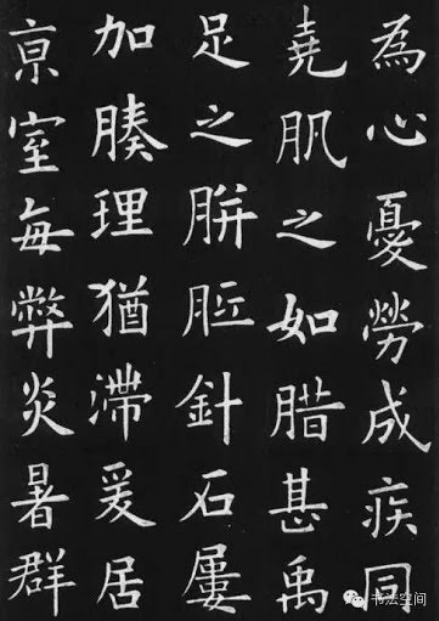 為心憂勞成疾同
堯肌之如腊甚禹
足之胼胝針石屢
加腠理猶滯爰居
亰室每弊炎暑群
书法空间